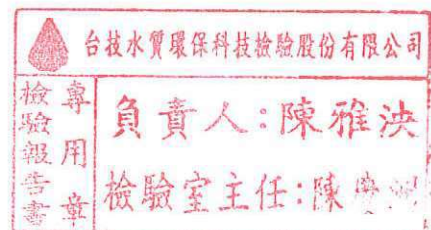 台技水質環保科技檢驗股份有限公司
檢驗報告書
專用章
負責人:陳雅泱
檢驗室主任:陳